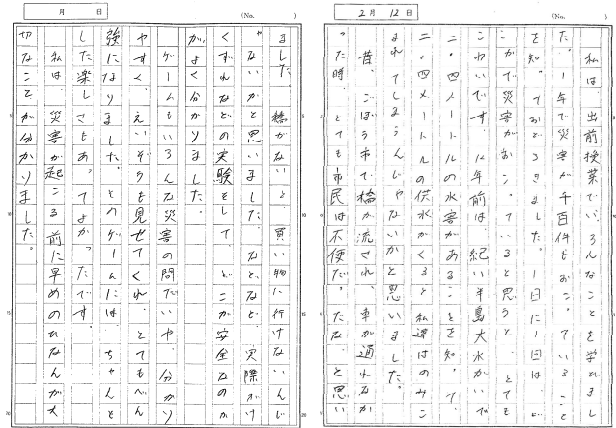 2月 12日
(No.        )
私は、出前授業でいろんなことを学びまし
た。1年で災害が千百件もおこっていること
を知っておどろきました。1日に1回は、ど
こかで災害がおこっていると思うと、とても
こわいです。12年前は、紀い半島大水がいで
二・四メートルの水害があることを知って、
二・四メートルの供水がくると、私達はのみこ
まれてしまうんじゃないかと思いました。
昔、ごぼう市で橋が流され、車が通れなか
った時、とても市民は不便だったな、と思い
月 日
(No.        )
ました。橋がないと、買い物に行けないんじ
ゃないかと思いました。などなど、実際がけ
くずれなどの実験をして、どこが安全なのか
がよく分かりました。
ゲームもいろんな災害の問だいや、分かり
やすく、えいぞうも見せてくれ、とてもべん
強になりました。そのゲームには、ちゃんと
した楽しさもあってよかったです。
私は、災害が起こる前に早めのひなんが大
切なことが分かりました。